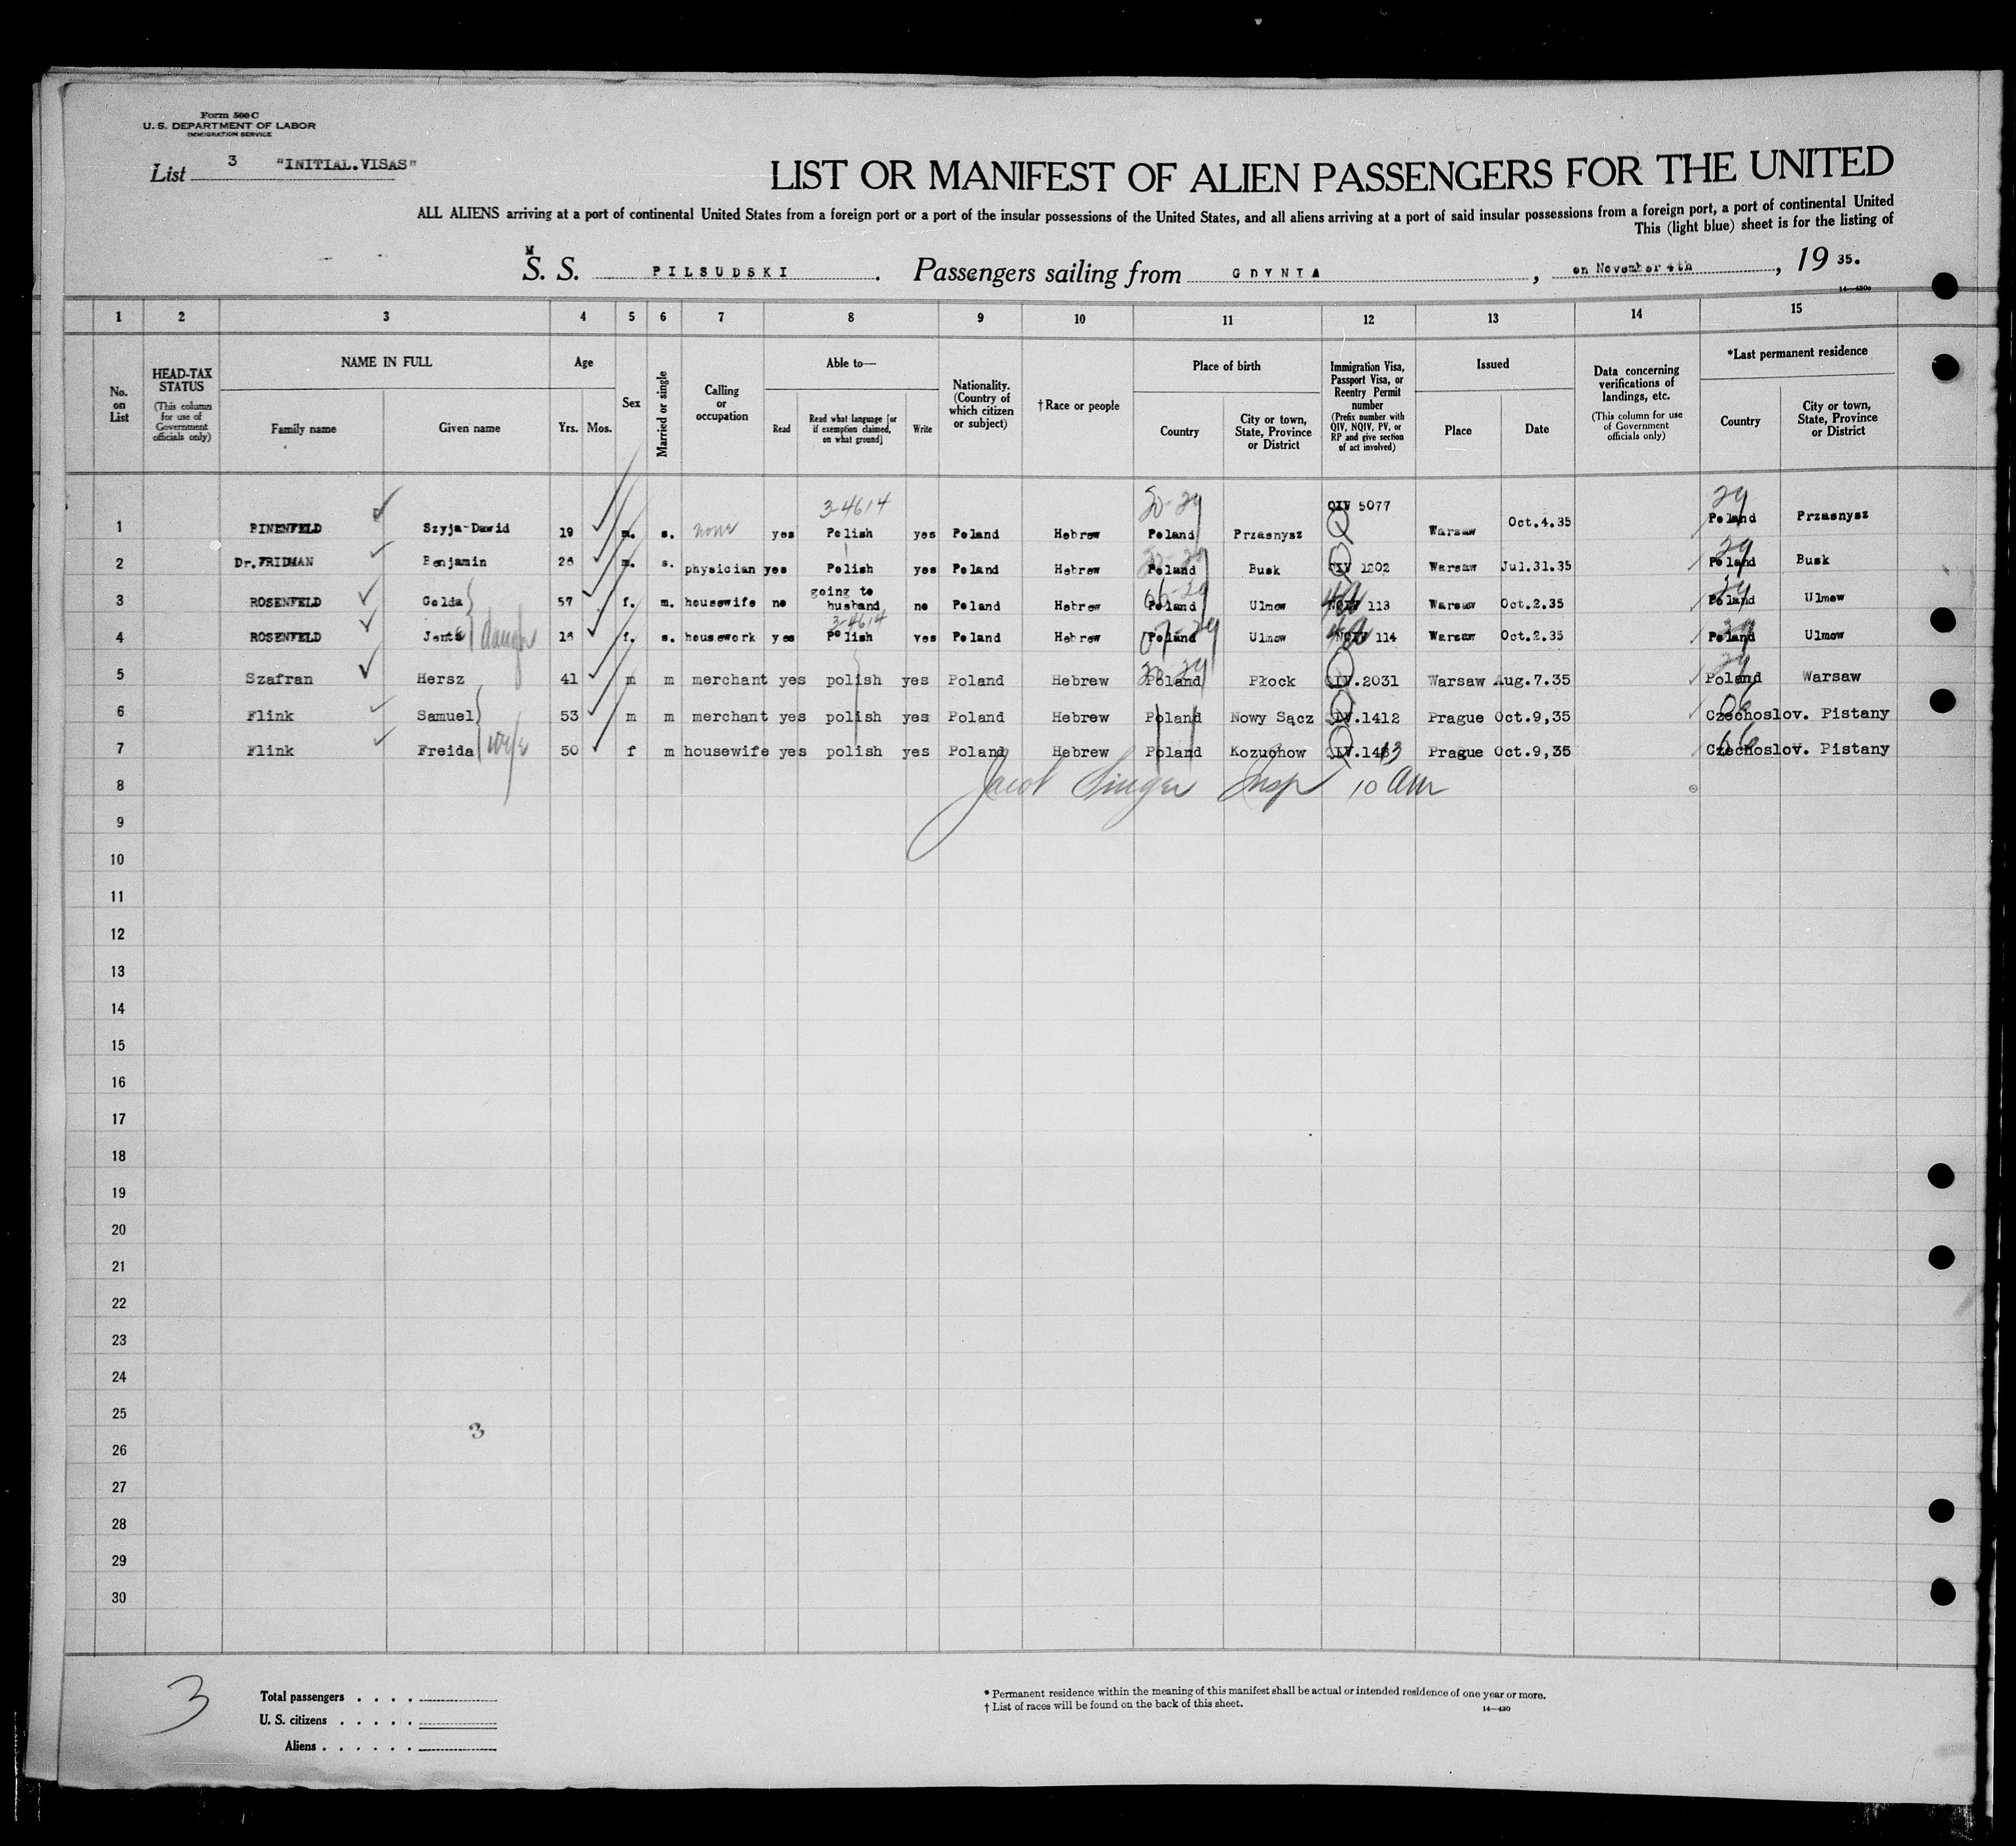 Form 500 C
U. S. DEPARTMENT OF LABOR
IMMIGRATION SERVICE
List 3 "INITIAL.VISAS"
LIST OR MANIFEST OF ALIEN PASSENGERS FOR THE UNITED
ALL ALIENS arriving at a port of continental United States from a foreign port or a port of the insular possessions of the United States, and all aliens arriving at a port of said insular possessions from a foreign port, a port of continental United
This (light blue) sheet is for the listing of
M
S. S. PILSUDSKI. Passengers sailing from GDYNIA, on November 4th, 19 35.
1 2 3 4 5 6 7 8 9 10 11 12 13 14 15
No. on List
HEAD-TAX STATUS
(This column for use of Government officials only)
NAME IN FULL
Family name Given name
Age
Yrs. Mos.
Sex
Married or single
Calling or occupation
Able to—
Read Read what language [or if exemption claimed, on what ground] Write
Nationality. (Country of which citizen or subject)
† Race or people
Place of birth
Country City or town, State, Province or District
Immigration Visa, Passport Visa, or Reentry Permit number
(Prefix number with QIV, NQIV, PV, or RP and give section of act involved)
Issued
Place Date
Data concerning verifications of landings, etc.
(This column for use of Government officials only)
*Last permanent residence
Country City or town, State, Province or District
3-4614
1 PINENFELD Szyja-Dawid 19 m. s. none yes Polish yes Poland Hebrew Poland Przasnysz QIV 5077 Warsaw Oct.4.35 Poland Przasnysz
2 Dr.FRIDMAN Benjamin 26 m. s. physician yes Polish yes Poland Hebrew Poland Busk QIV 1202 Warsaw Jul.31.35 Poland Busk
3 ROSENFELD Golda 57 f. m. housewife no going to husband no Poland Hebrew Poland Ulmow NQIV 113 Warsaw Oct.2.35 Poland Ulmow
3-4614
4 ROSENFELD Jenta daugh 16 f. s. housework yes Polish yes Poland Hebrew Poland Ulmow NQIV 114 Warsaw Oct.2.35 Poland Ulmow
5 Szafran Hersz 41 m m merchant yes polish yes Poland Hebrew Poland Płock QIV.2031 Warsaw Aug.7.35 Poland Warsaw
6 Flink Samuel 53 m m merchant yes polish yes Poland Hebrew Poland Nowy Sącz QIV.1412 Prague Oct.9,35 Czechoslov. Pistany
7 Flink Freida wife 50 f m housewife yes polish yes Poland Hebrew Poland Kozuchow QIV.1413 Prague Oct.9,35 Czechoslov. Pistany
8 Jacob Singer Insp 10 am
9
10
11
12
13
14
15
16
17
18
19
20
21
22
23
24
25
3
26
27
28
29
30
3
Total passengers . . . .
U. S. citizens . . . . .
Aliens . . . . . .
* Permanent residence within the meaning of this manifest shall be actual or intended residence of one year or more.
† List of races will be found on the back of this sheet.
14—430